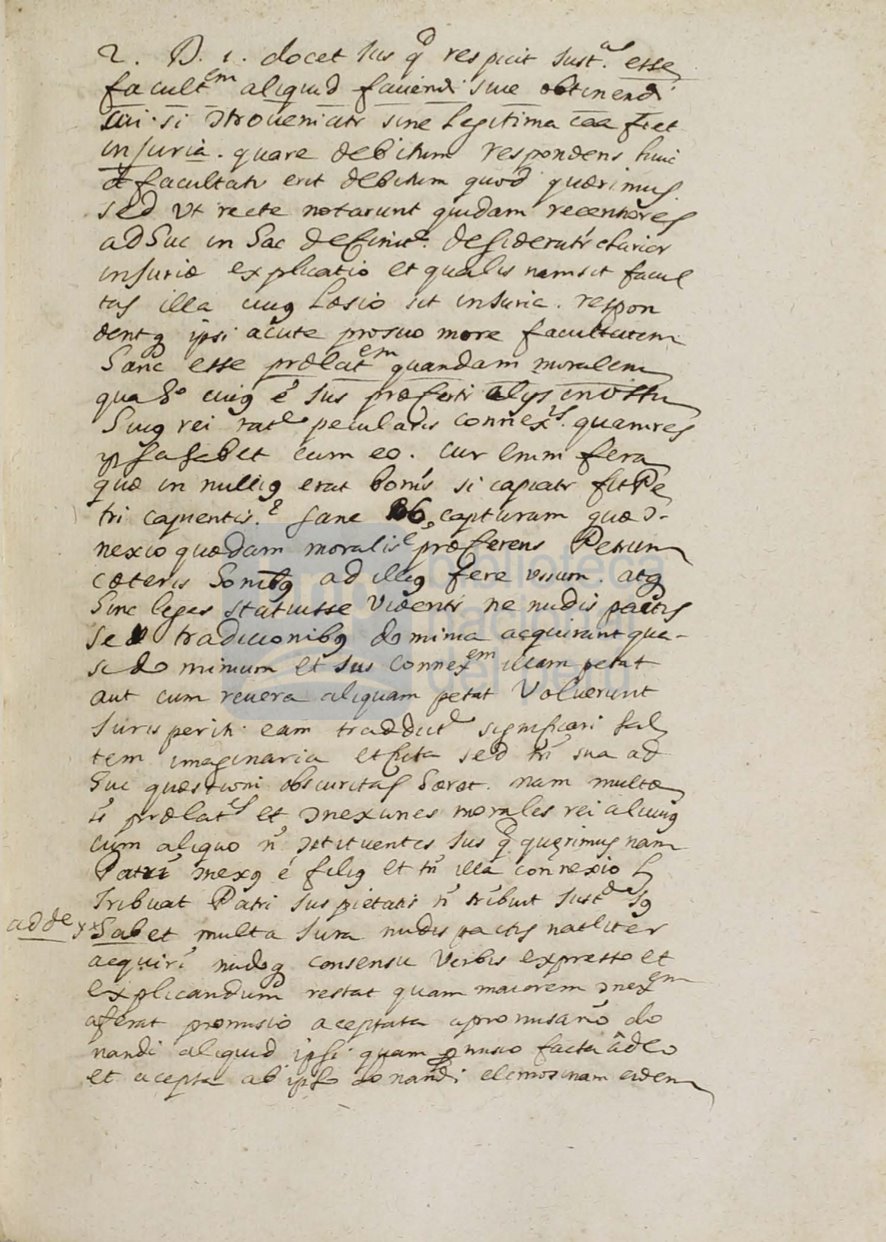 2. D. 1. docet Jus qd respicit Just.a esse
facultem aliquid faciendi siue obtinendi
cui si ɔtroueniatr sine legitima caa fiet
injuria. quare debitum respondens huic
facultati erit debitum quod quærimus
sed Vt recte notarunt quidam recentiores
adhuc in hac definite. desideratr clarior
injuriæ explicatio et qualis nam sit facul
tas illa cuiꝯ læsio sit injuria. respon
dentq ipsi acute pro suo more facultatem
hanc esse prælatem quandam moralem
qua ho cuiꝯ é Jus præfertr alijs in vsu
hujꝯ rei rate peculiaris connexis. quam res
ipsa habet cum eo. cur enim fera
quæ in nulliꝯ erat bonis si capiatr fit Pe
tri capientis.? sane ob capturam quæ ɔ-
nexio quædam moralis é præferens Petrum
cæteris hominibꝯ ad illiꝯ feræ vsum. atq
hinc leges statuisse Videntr ne nudis pactis
sed traditionibꝯ dominia acquirant qua-
si dominium et Jus connexem illam petat
aut cum reuera aliquam petat Voluerunt
Juris periti eam traddite significari sal
tem imaginaria et ficta sed tn sua ad
huc quæstioni obscuritas hæret. nam multæ
st prælates et ɔnexiones morales rei alicuiꝯ
cum aliquo ñ ɔstituentes Jus qd quærimus nam
Patri ɔnexꝯ é filiꝯ et tñ illa connexio l
tribuat Patri Jus pietatis ñ tribuit Juste
adde x Habet multa Jura nudis pactis natliter
acquiri nudoq consensu Verbis expresso et
explicandum restat quam maiorem ɔnexem
aferat promisio aceptata a promisario do
nandi aliquid ipsi quam promisio facta a deo
et acepta ab ipso donandi elemosinam eidem